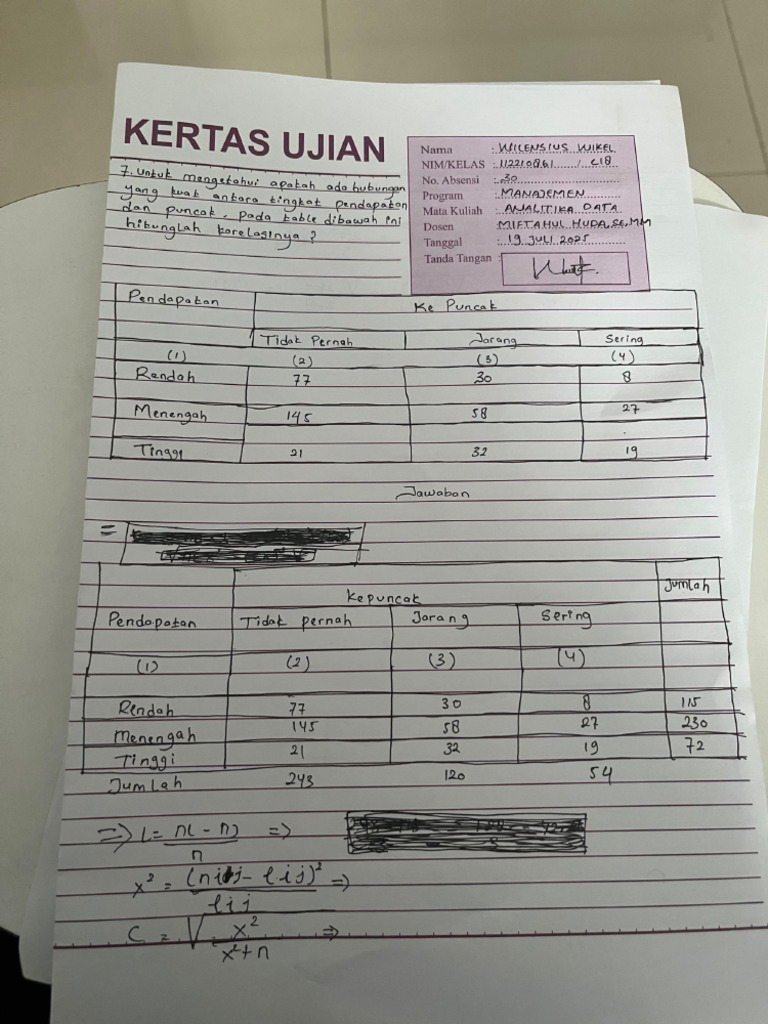 KERTAS UJIAN
Nama : WILENSIUS WIKEL
NIM/KELAS : 112210861 / C18
No. Absensi : 30
Program : MANAJEMEN
Mata Kuliah : ANALITIKA DATA
Dosen : MIFTAHUL HUDA, SE, MM
Tanggal : 19 JULI 2025
Tanda Tangan :
7. Untuk mengetahui apakah ada hubungan
yang kuat antara tingkat pendapatan
dan puncak, pada table dibawah ini
hitunglah korelasinya ?
Pendapatan Ke Puncak
Tidak Pernah Jarang Sering
(1) (2) (3) (4)
Rendah 77 30 8
Menengah 145 58 27
Tinggi 21 32 19
Jawaban
=
Kepuncak Jumlah
Pendapatan Tidak pernah Jarang Sering
(1) (2) (3) (4)
Rendah 77 30 8 115
Menengah 145 58 27 230
Tinggi 21 32 19 72
Jumlah 243 120 54
n
x² = (nij - eij)² =>
eij
C = √ x² =>
x²+n